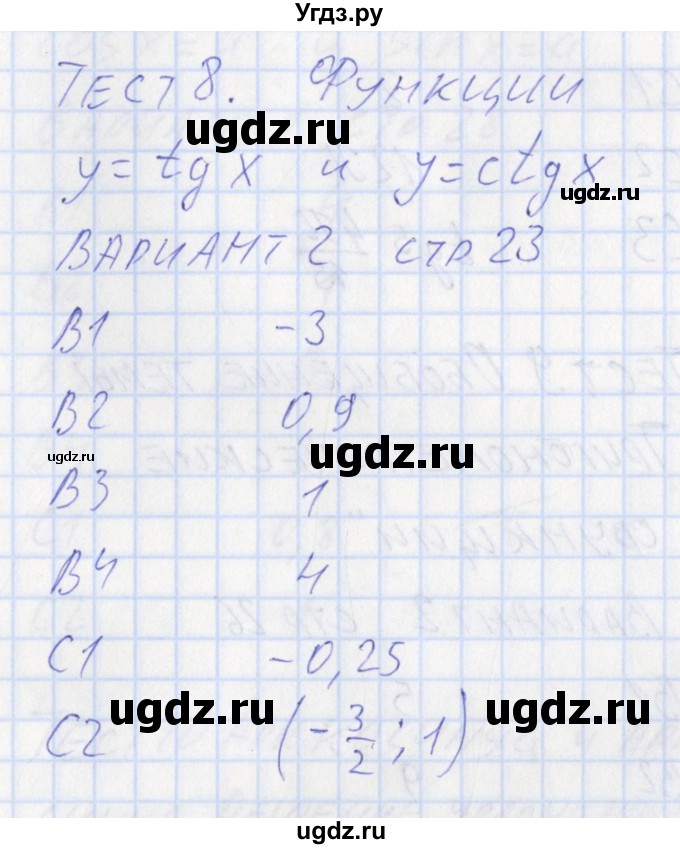 Угдз.ру
Тест 8. Функции
ugdz.ru
y = tg x и y = ctg x
ugdz.ru
Вариант 2 стр 23
B1 -3
B2 0,9
ugdz.ru
ugdz.ru
B3 1
B4 4
C1 -0,25
ugdz.ru
ugdz.ru
C2 (-3/2; 1)
ugdz.ru
ugdz.ru